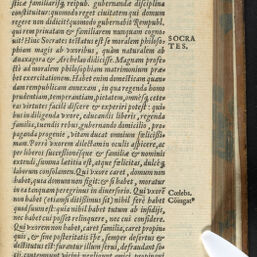 sticæ familiarisq́; reipub. gubernandæ disciplina
constituitur: quomodo reget ciuitatem qui domum
regere non didicit? quomodo gubernabit Rempubl.
qui rem priuatam & familiarem nunquam cogno-
uit? Hinc Socrates tectatus est se moralem philoso-
phiam magis ab vxoribus, quàm naturalem ab
Anaxagora & Archelao didicisse. Magnam profe-
ctò ad moralem philosophiam matrimonium præ-
bet exercitationem. Habet enim domesticam quan-
dam rempublicam annexam, in qua regenda homo
prudentiam, temperantiam, pietatem, omnésq́; cæte-
ras virtutes facilè discere & experiri potest: qui-
bus in diligenda vxore, educandis liberis, regenda
familia, tuendis rebus, gubernando domicilio, pro-
paganda progenie, vitam ducat omnium felicissi-
mam. Porrò vxorem dilectam in oculis aspiciens, ac
per liberos successionésque & familiæ & nominis
extendi, summa lætitia est, atque felicitas, dulcéq́;
laborum consolamen. Qui vxore caret, domum non
habet, quia domum non figit: & si habet, moratur
in ea tanquam peregrinus in diuersorio. Qui vxorem
non habet (etiamsi ditissimus sit) nihil ferè habet
quod suum est: quia nihil habet tutum ab insidijs,
nec habet cui posset relinquere, nec cui confidere.
Qui vxorem non habet, caret familia, caret propin-
quis, & sine posteritatis spe, semper desertus &
destitutus est: furantur illum serui, defraudant so-
SOCRA
TES.
Cœlebs.
Cōiugat*